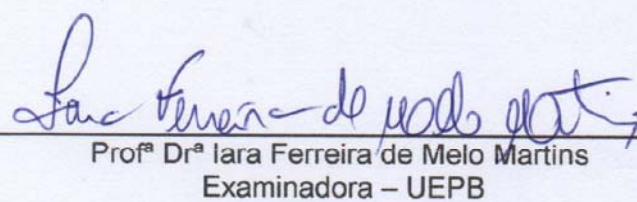 Iara Ferreira de Melo Martins
Profª Drª Iara Ferreira de Melo Martins
Examinadora – UEPB